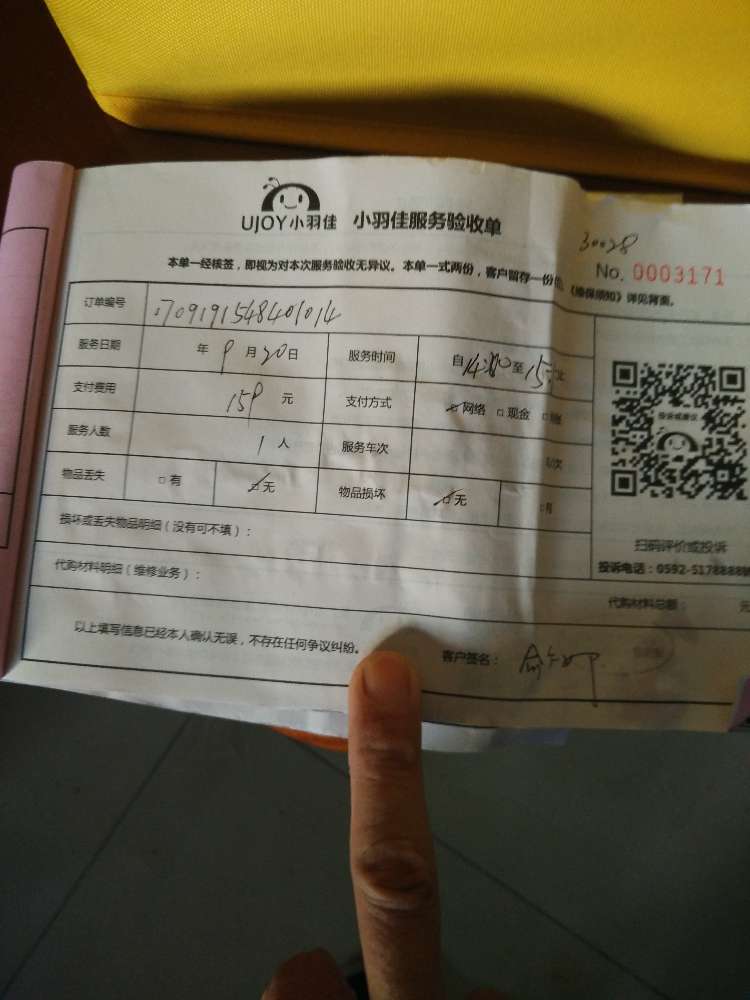 UJOY小羽佳 小羽佳服务验收单
30028
No. 0003171
本单一经核签，即视为对本次服务验收无异议。本单一式两份，客户留存一份 《维保须知》详见背面。
订单编号 1709191548401014
服务日期 年 9 月 20 日 服务时间 自 14: 至 15:
支付费用 159 元 支付方式 ☑网络 □现金 □
服务人数 1 人 服务车次 次
物品丢失 □有 ☑无 物品损坏 ☑无
投诉或建议
扫码评价或投诉
投诉电话：0592-5178888
损坏或丢失物品明细（没有可不填）：
代购材料明细（维修业务）：
代购材料总额： 元
以上填写信息已经本人确认无误，不存在任何争议纠纷。 客户签名：